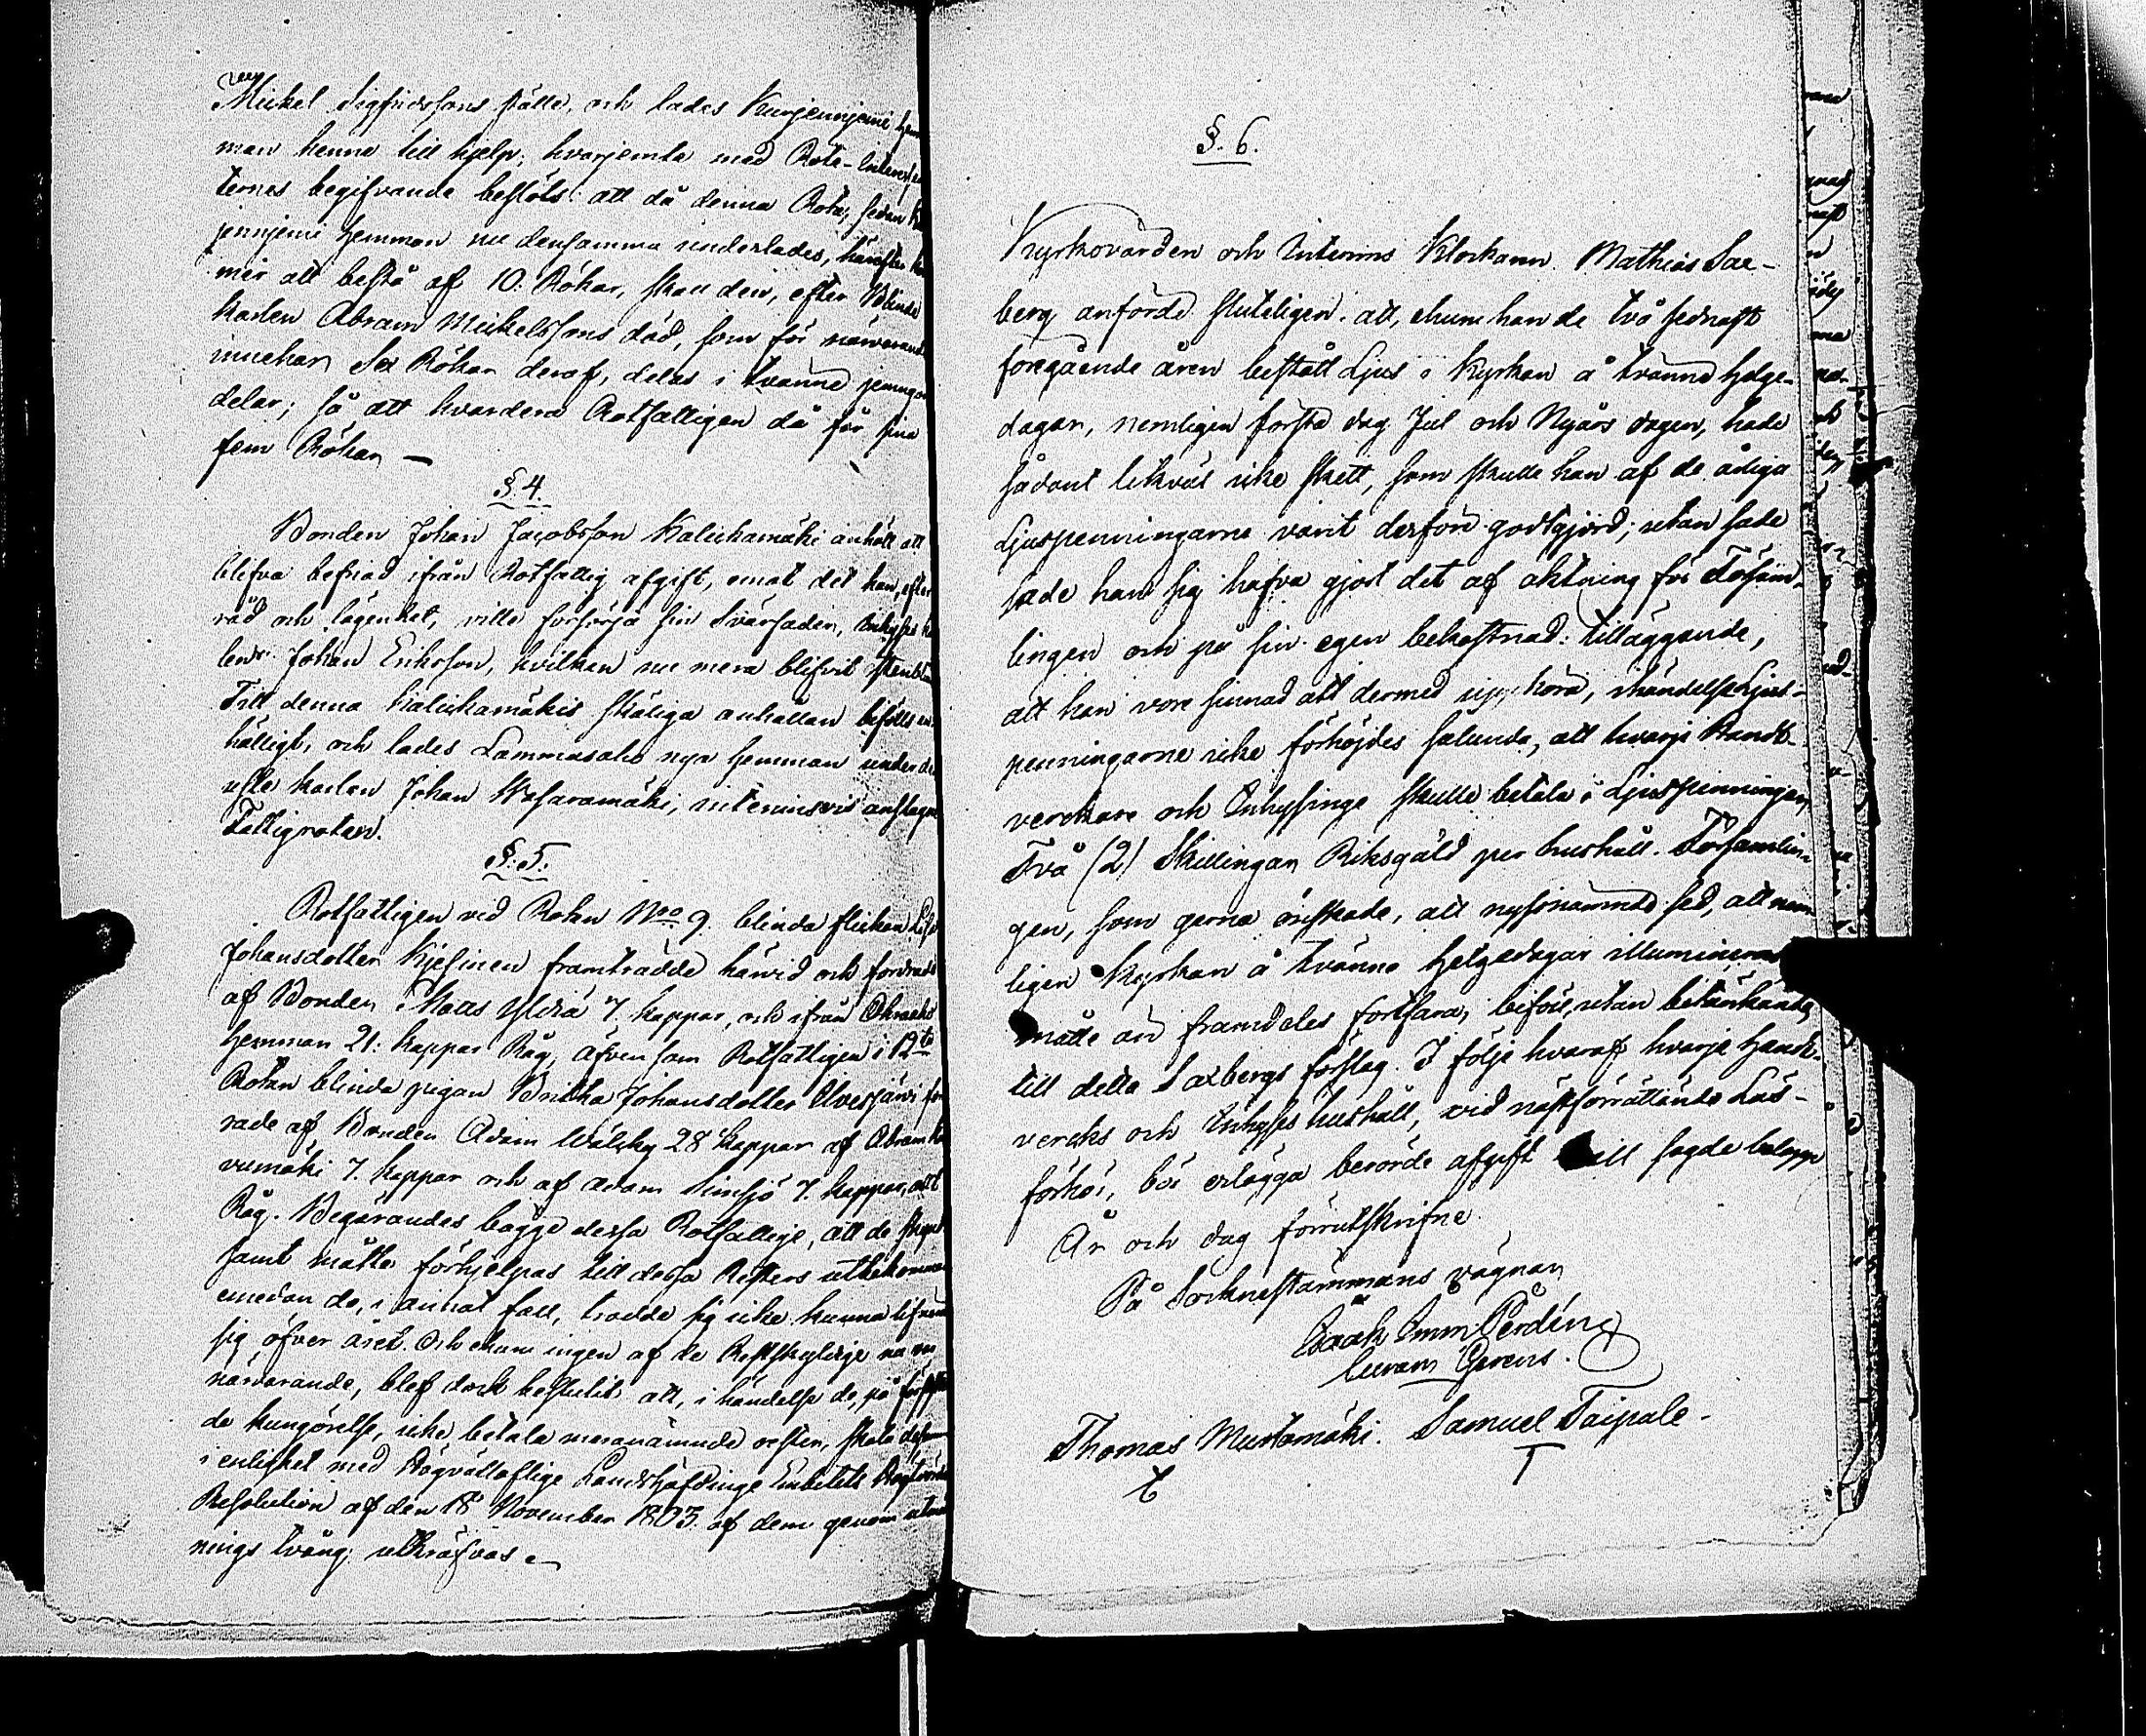 Mickel Sigfridssons ställe, och lades Kunjennjemi hem
man henne till hjelp; hvarjemte med Rote-Intressen
ternes begifvande beslöts: att då denna Rota, sedan
jennjemi hemman nu densamma underlades, härefter
mer att bestå af 10. Rökar, skall den, efter Blinde
karlen Abram Mickelssons död, som för närvarande
innehar Sex Rökar deraf, delas i tvänne jemngoda
delar; så att hvardera Rotfattigen då får sina
fem Rökar —
§. 4.
Bonden Johan Jacobsson Kaliskamäki anhöll att
blifva befriad ifrån Rotfattig afgift, emot det han, efter
råd och lägenhet, ville försörja sin Svärfader, Inhyses
len Johan Eriksson, hvilken nu mera blifvit stenblind
Till denna Kaliskamäkis skäliga anhållan beföllts en
hälligt, och lades Lammasaho nya hemman under
usle karlen Johan Wasaramäki, interimsvis anslagne
Fattigrotan.
§. 5.
Rotfattigen vid Rotan No 9. blinda flickan Lisa
Johansdotter Kjelinen framträdde härvid och fordrade
af Bonden Matts Yldriä 7. kappar, och ifrån Okraks
hemman 21. kappar Råg, äfvensom Rotfattigen i 12te
Rotan blinda pigan Britha Johansdotter Elvesjärvi ford
rade af Bonden Adam Wälsky 28 kappar af Abram
vumäki 7. kappar och af Adam Simsjö 7. kappar, allt
Råg. Begärandes bägge dessa Rotfattige, att de
samt måtte förhjelpas till dessa Resters utbekomma
emedan de, i annat fall, trodde sig icke kunna lifnära
sig öfver året. Och ehuru ingen af de Restskyldige nu var
närvarande, blef dock beslutit att, i händelse de, på
de kungörelse, icke betala meranämnde rester, skola desamma
i enlighet med Högvällofliga Landshöfdinge Embetets
Resolution af den 18 November 1803. af dem genom utmät
nings tvång utkräfvas. —
§. 6.
Kyrkovärden och Interims Klockaren Mathias Sax-
berg anförde sluteligen: att, ehuru han de två sednast
föregående åren bestått Ljus i Kyrkan å tvänne helge-
dagar, nemligen första dag Jul och Nyårs dagen, hade
sådant likväl icke skett, som skulle han af de årliga
Ljuspenningarne varit derföre godtgjord; utan sade
sade han sig hafva gjort det af aktning för Församm-
lingen och på sin egen bekostnad: tilläggande,
att han vore sinnad att dermed upphöra, i händelse Ljus-
penningarne icke förhöjdes sålunda, att hvarje Handt-
verckare och Inhysinge skulle betala i Ljuspenningar,
Två (2) Skillingar Riksgäld per hushåll. Församlin-
gen, som gerna önskade, att nyssnämnde sed, att nem
ligen Kyrkan å tvänne helgedagar illumineras
måtte än framdeles fortfara; biföll, utan betänkande,
till detta Saxbergs förslag. I följe hvaraf hvarje Handt-
vercks och Inhyses hushåll, vid nästförrättande Läs-
förhör, bör erlägga berörde afgift till sagde belopp
År och dag förrutskrifne.
På Socknestämmans vägnar
Isaak Imm: Perdén
Curam Gerens.
Thomas Mustamäki. Samuel Taipale.
T